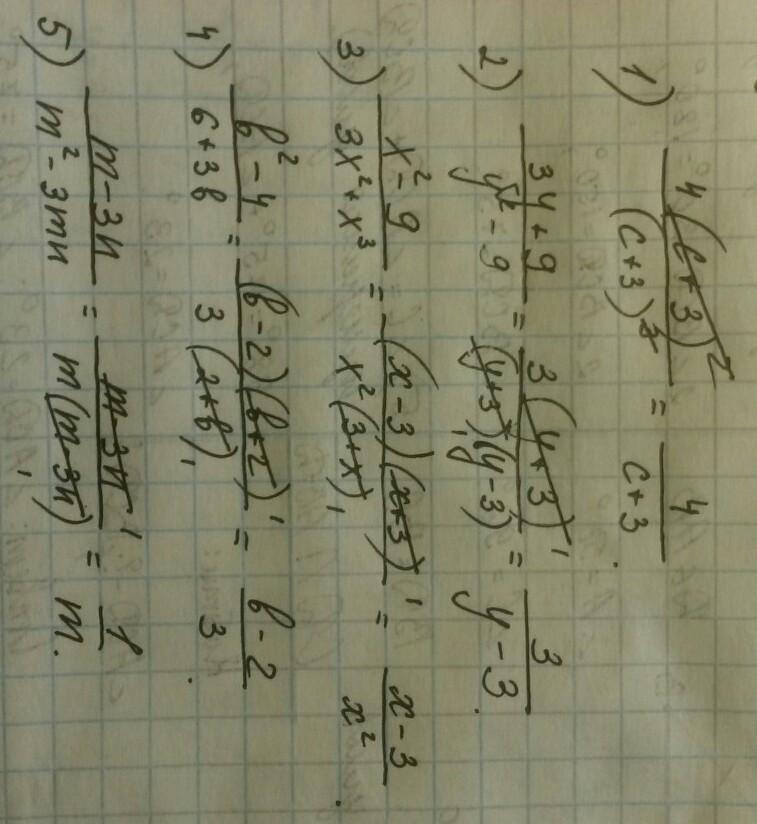 1) 4(c+3)/(c+3)² = 4/(c+3).
2) (3y+9)/(y²-9) = 3(y+3)¹/((y+3)₁(y-3)) = 3/(y-3).
3) (x²-9)/(3x²+x³) = (x-3)(x+3)¹/(x²(3+x)₁) = (x-3)/x².
4) (b²-4)/(6+3b) = (b-2)(b+2)¹/(3(2+b)₁) = (b-2)/3.
5) (m-3n)/(m²-3mn) = (m-3n)¹/(m(m-3n)₁) = 1/m.